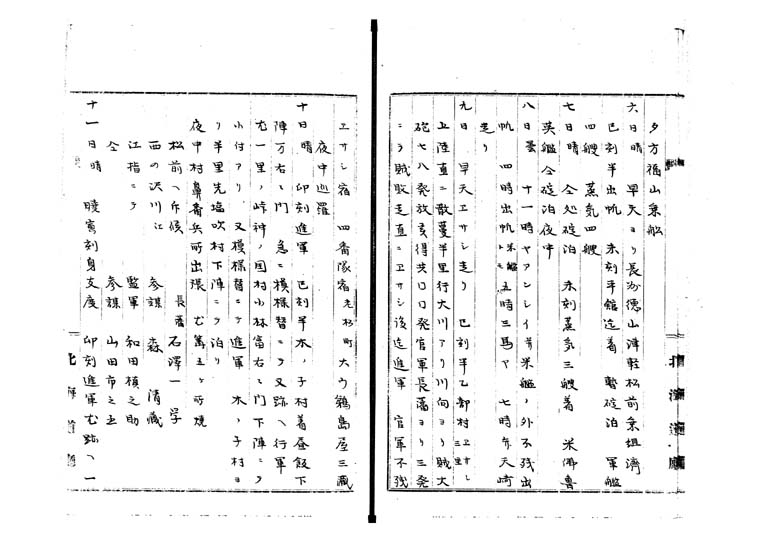 夕方福山乗船
六日晴 早天ヨリ長州徳山津軽松前乗組済
巳刻半出帆 未刻半舘迄着 暫碇泊 軍艦
四艘 蒸気四艘
七日晴 仝処碇泊 未刻蒸気三艘着 米佛魯
英艦仝碇泊夜中
八日曇 十一時ヤアンシイ号米艦ノ外不残出
帆 四時出帆米艦トモ五時三馬ヤ 七時弁天崎
走リ
九日 早天ヱサシ走リ 巳刻半乙部村ヱサシ三里
上陸直ニ散蔓半里行大川アリ川向ヨリ賊大
砲七八発放
発官軍長藩ヨリ三発
ニテ賊敗走直ニヱサシ後迄進軍 官軍不残
ヱサシ宿 四番隊宿 町大ウ鶴島屋三蔵
夜中巡羅
十日晴 卯刻進軍 巳刻半木ノ子村着昼飯下
陣万右ヱ門 急ニ模様替ニテ又跡ヘ行軍
壱一里ノ峠神ノ国村小林富右ヱ門下陣ニテ
小付アリ 又模様替ニテ進軍 木ノ子村ヨ
リ半里先塩吹村下陣ニテ泊リ
夜中村鼻番兵所出張 篝五ヶ所焼
松前ヘ斥候 長藩 石澤一学
西の沢川江 参謀 森 清蔵
江指ニテ 監軍 和田槙之助
仝 参謀 山田市之丞
十一日晴 暁寅刻身支度 卯刻進軍 跡ヘ一
北海道廳